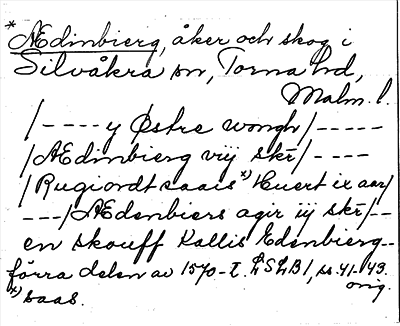 * Ædinbierg, åker och skog i
Silvåkra sn, Torna hd,
Malm. l.
/---- y Østre wongh/-----
/Ædinbierg vij skr/----
/Rugiordt saais *) Huert ix aar/
---/Ædenbiers agir iij skr/--
en skouff Kallis Edenbierg--
förra delen av 1570-t. LSLB1, ss. 41-43.
orig.
*) saas.